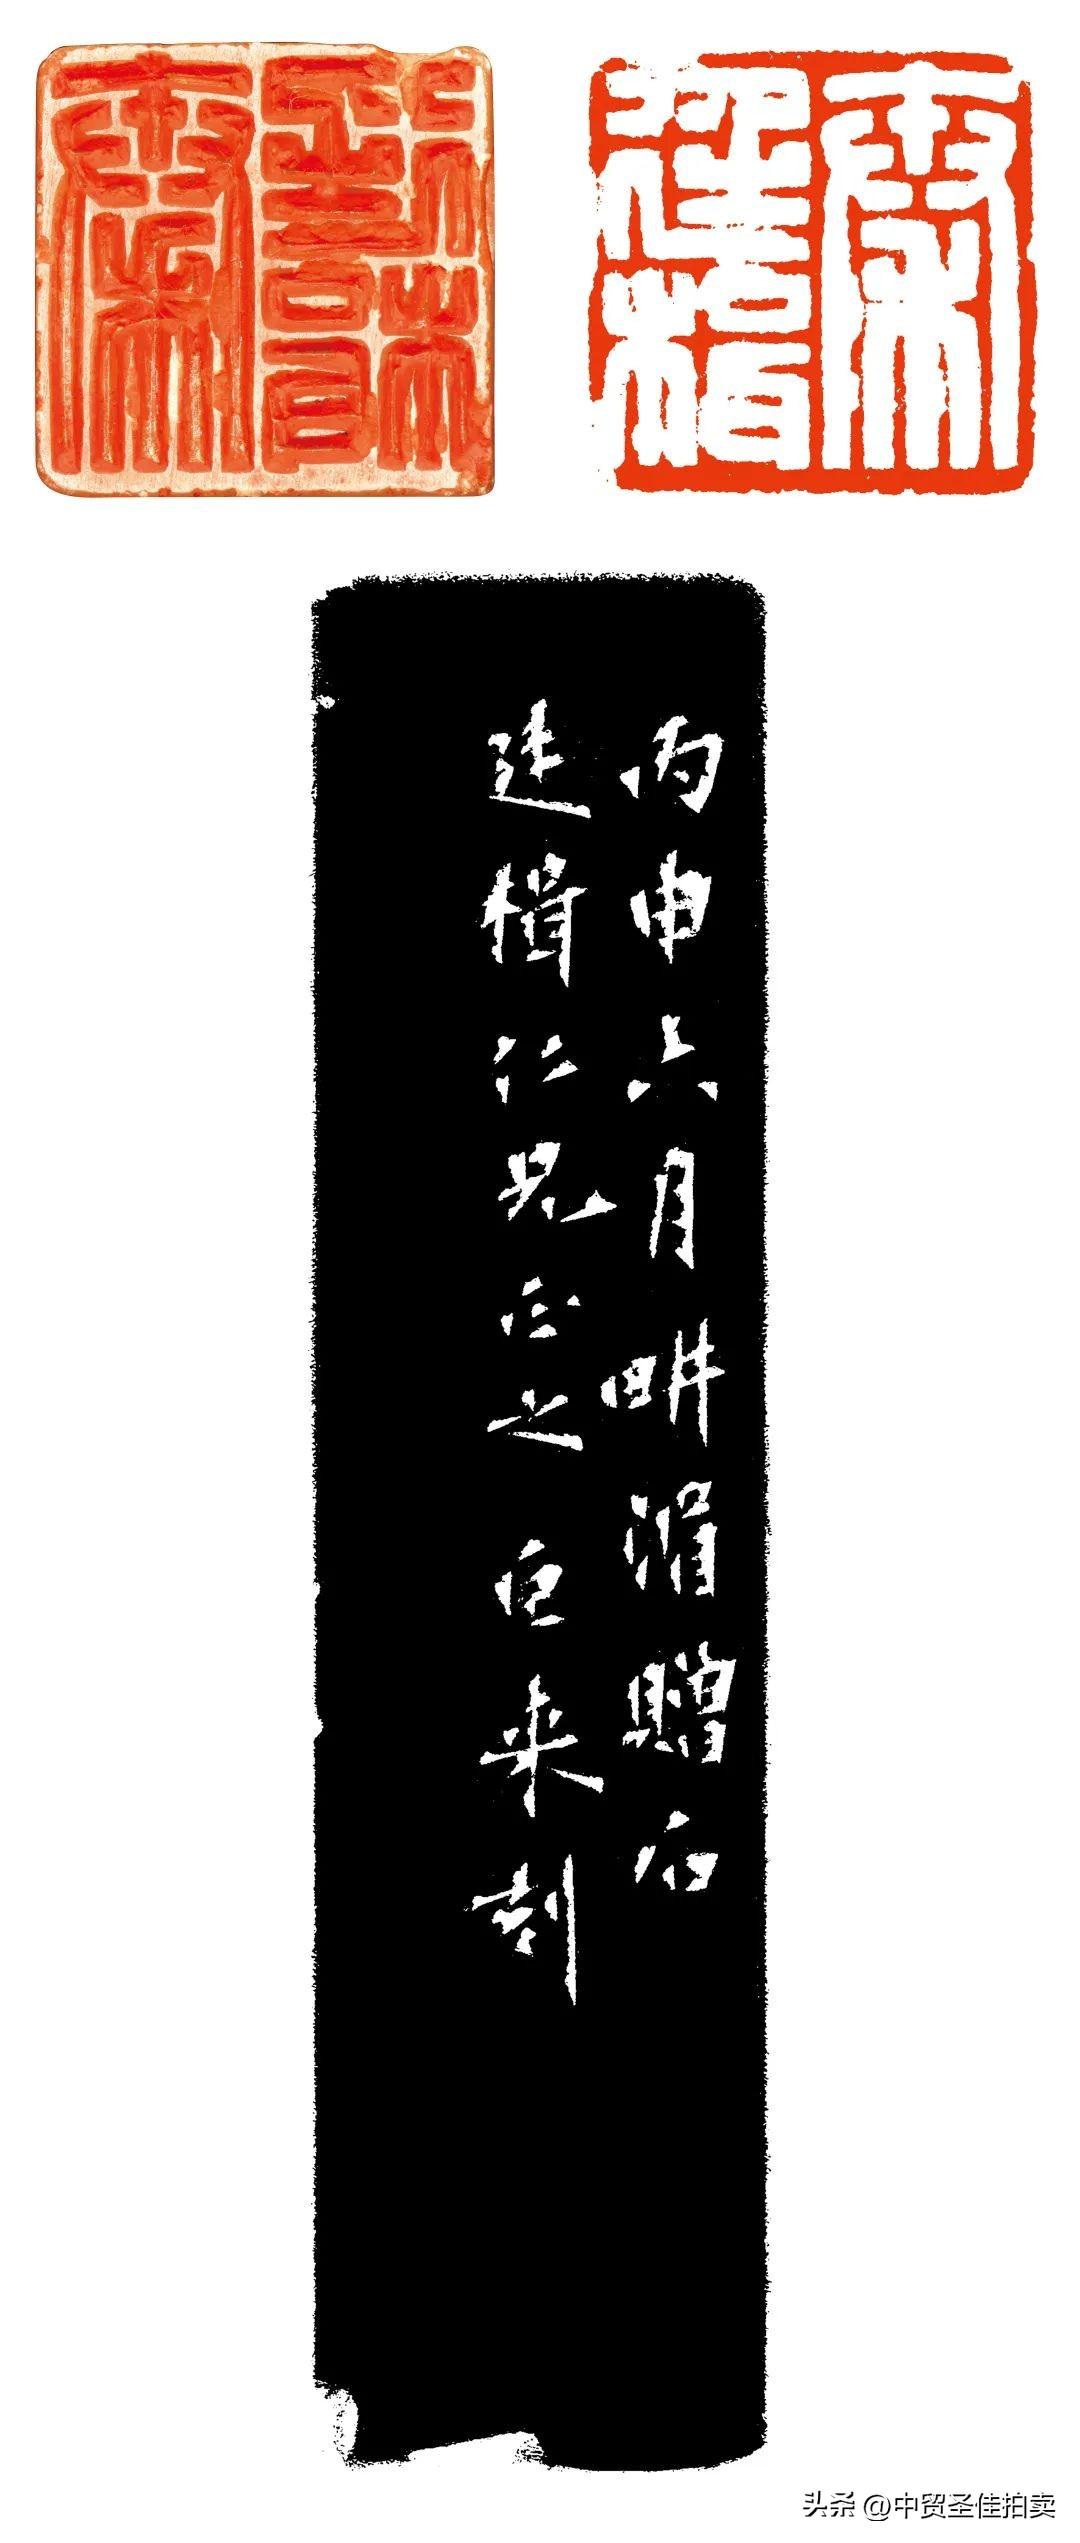 建楫
丙申六月畊湄贈石
建楫仁兄正之 巨来刻
头条 @中贸圣佳拍卖